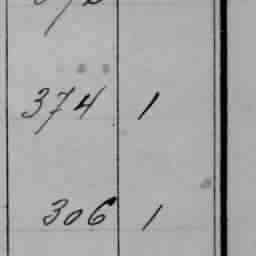 374 1
306 1